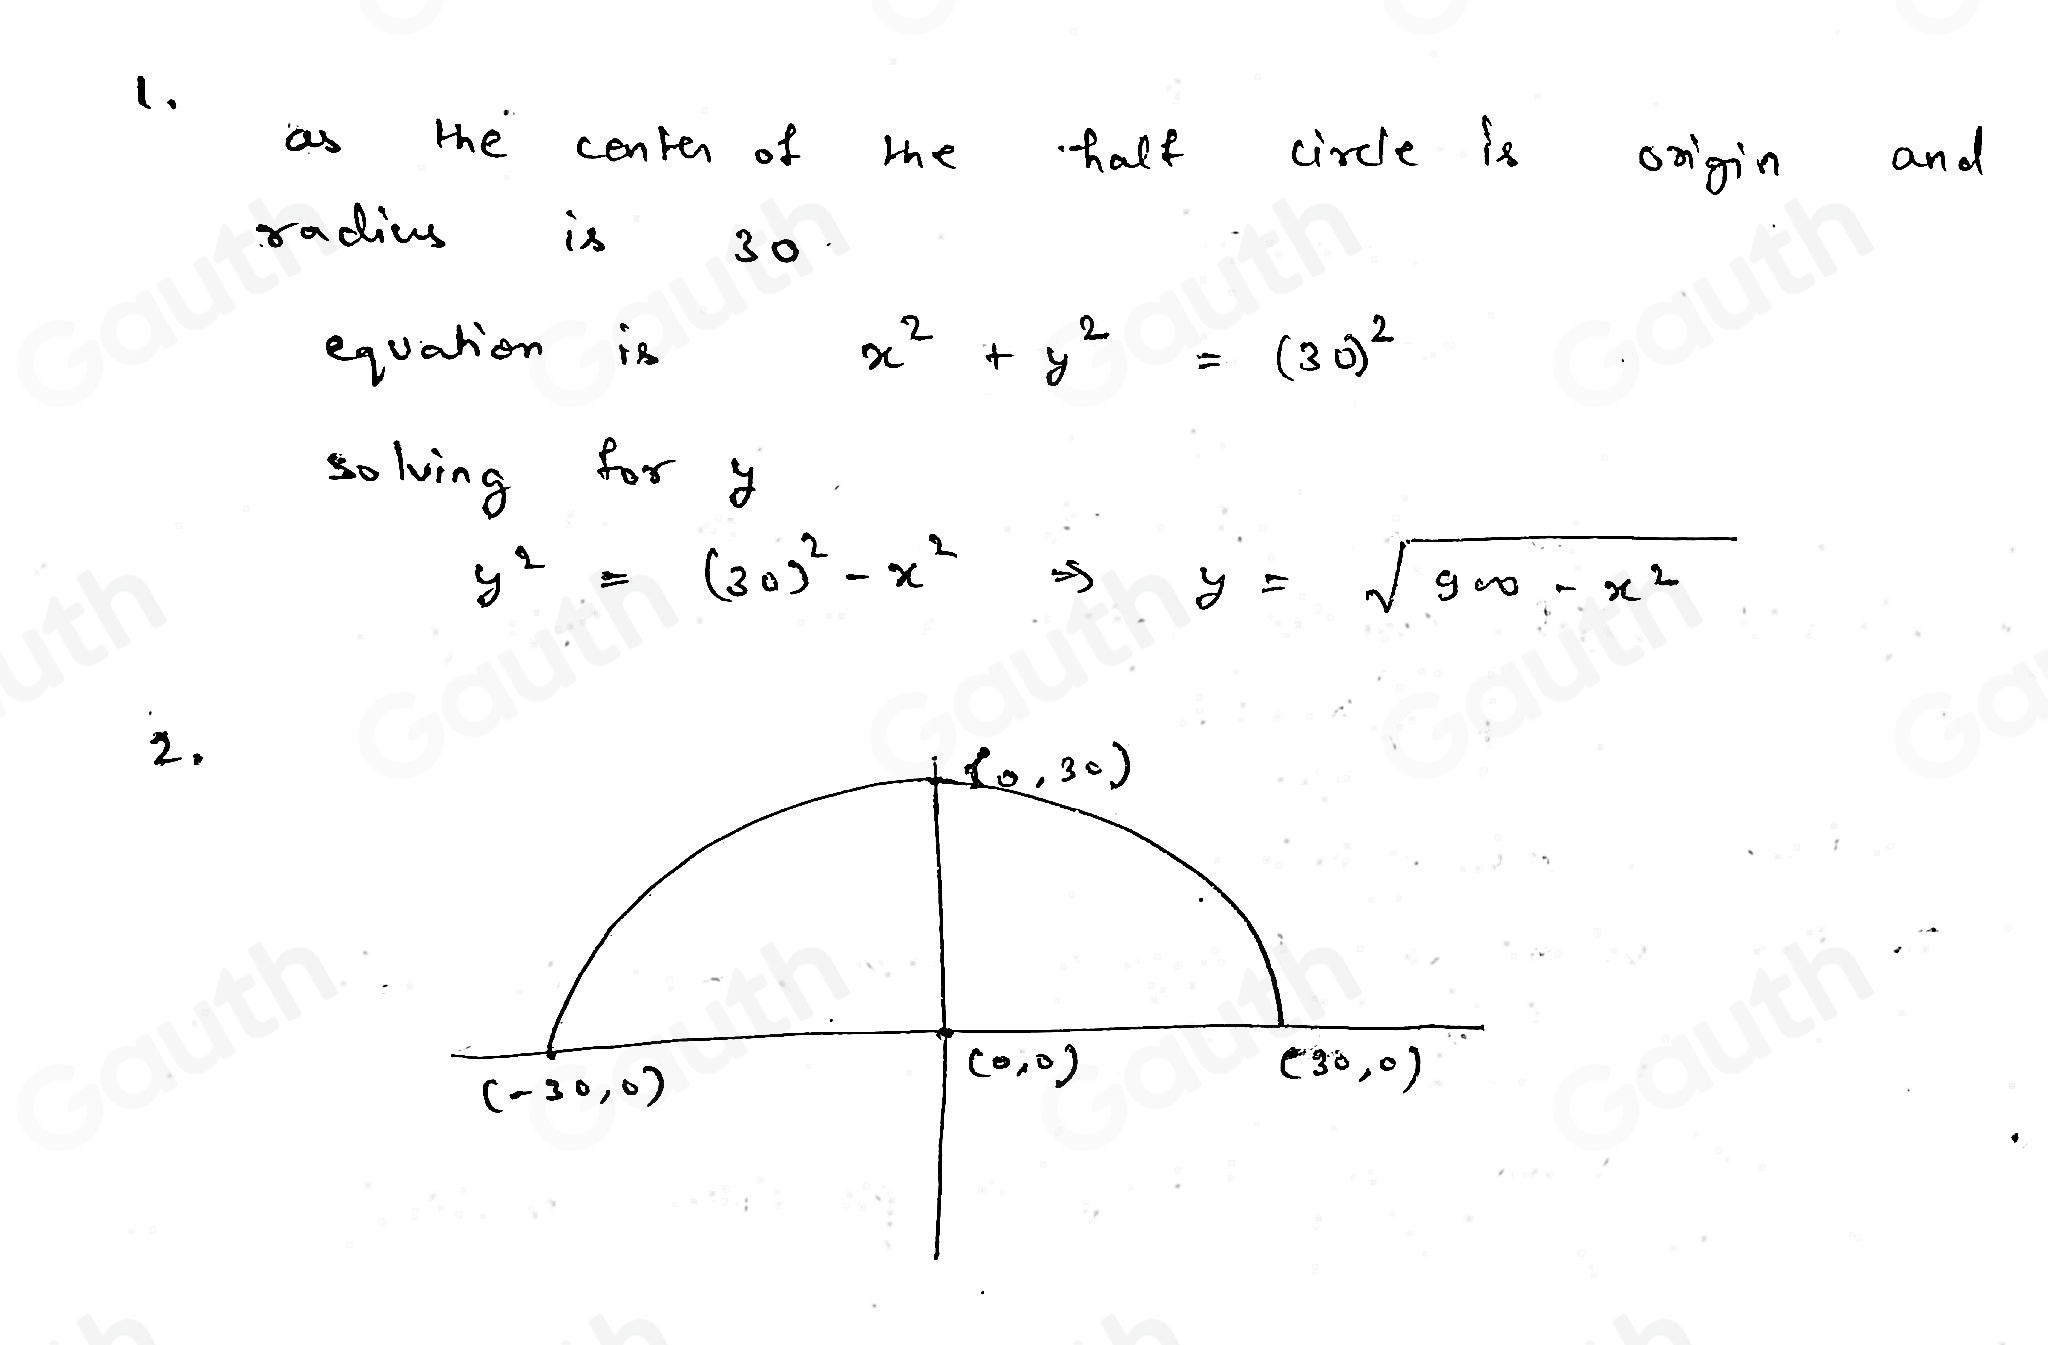 1.
as the center of the half circle is origin and
radius is 30
equation is x² + y² = (30)²
solving for y
y² = (30)² - x² ⇒ y = √900 - x²
2.
(0,30)
(-30,0) (0,0) (30,0)
Gauth